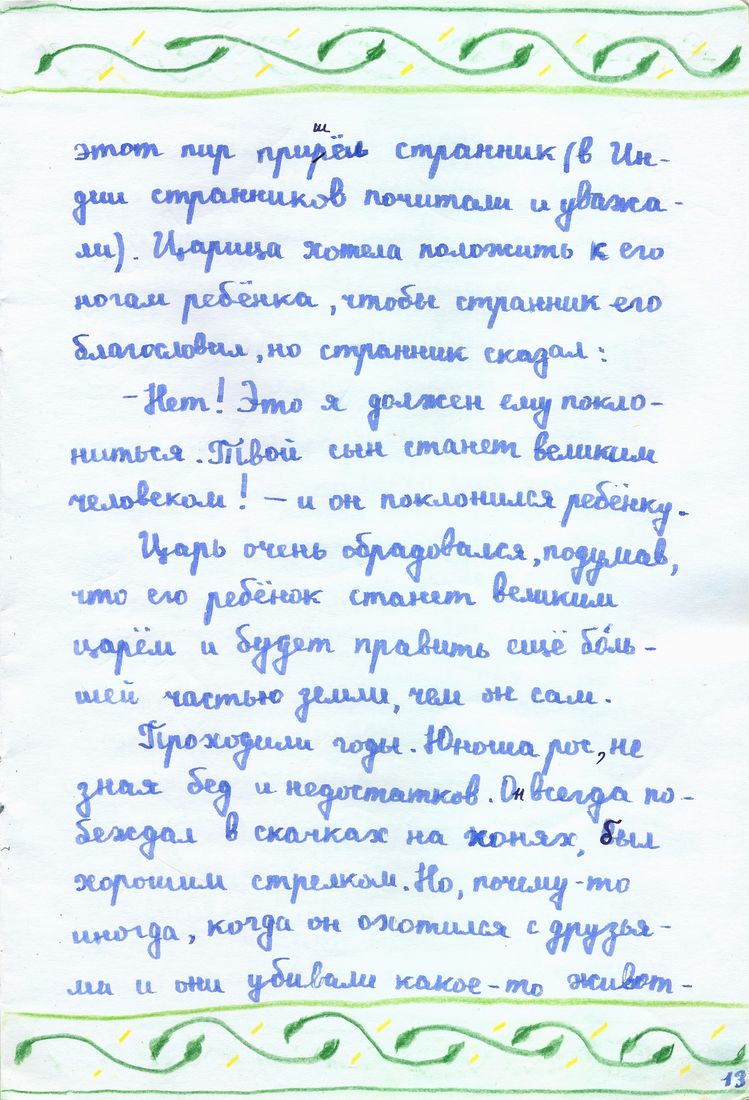 этот пир пришёл странник (в Ин-
дии странников почитали и уважа-
ли). Царица хотела положить к его
ногам ребёнка, чтобы странник его
благословил, но странник сказал:
- Нет! Это я должен ему покло-
ниться. Твой сын станет великим
человеком! - и он поклонился ребёнку.
Царь очень обрадовался, подумав,
что его ребёнок станет великим
царём и будет править ещё бо́ль-
шей частью земли, чем он сам.
Проходили годы. Юноша рос, не
зная бед и недостатков. Он всегда по-
беждал в скачках на конях, был
хорошим стрелком. Но, почему-то
иногда, когда он охотился с друзья-
ми и они убивали какое-то живот-
13